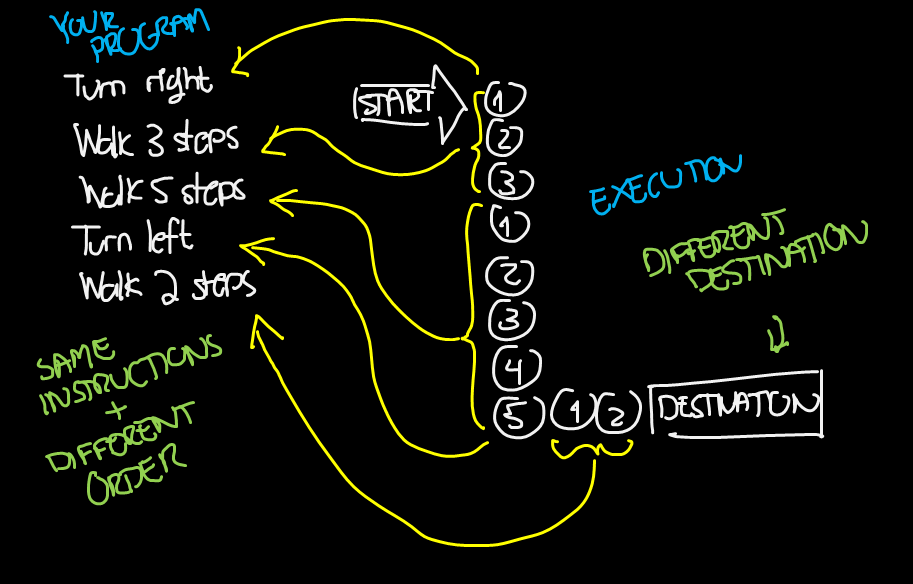 YOUR
PROGRAM
Turn right
Walk 3 steps
Walk 5 steps
Turn left
Walk 2 steps
SAME
INSTRUCTIONS
+
DIFFERENT
ORDER
START
1
2
3
1
2
3
4
5 1 2 DESTINATION
EXECUTION
DIFFERENT
DESTINATION